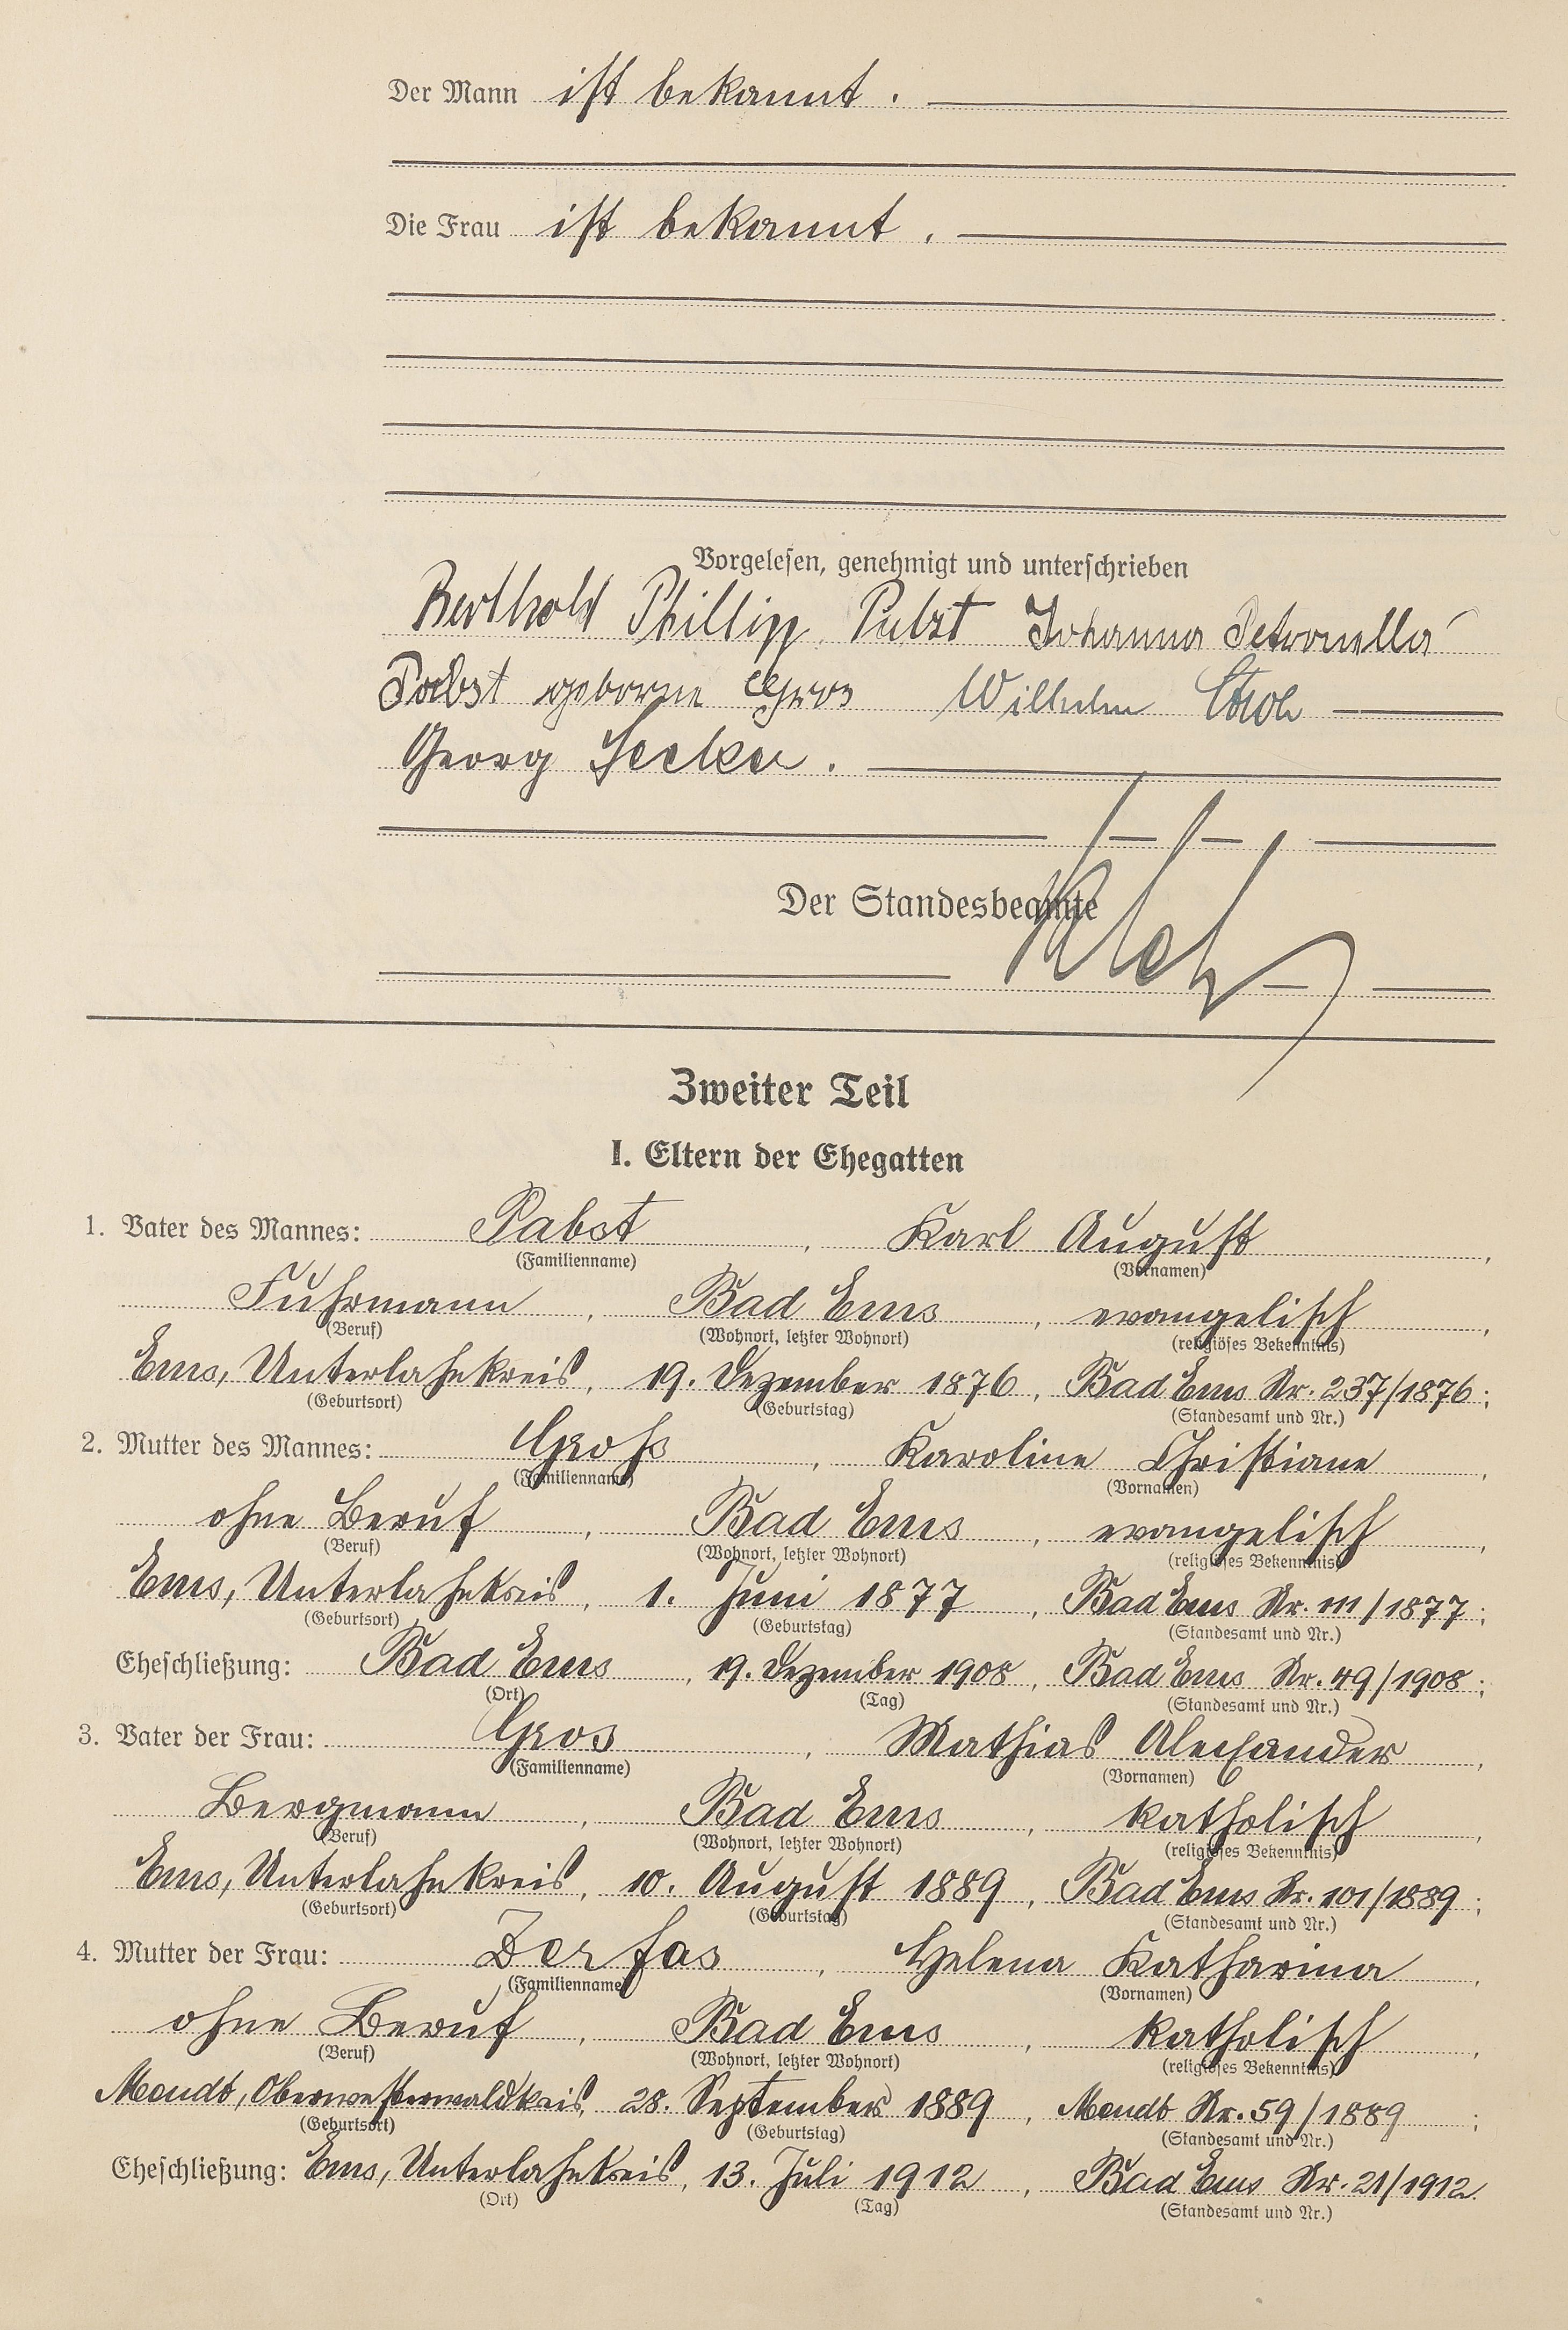 Der Mann ist bekannt.
Die Frau ist bekannt.
Vorgelesen, genehmigt und unterschrieben
Berthold Phillipp Pabst Johanna Petronella
Pabst geborene Gros Wilhelm
Georg
Der Standesbeamte
Zweiter Teil
I. Eltern der Ehegatten
1. Vater des Mannes: Pabst, Karl August,
(Familienname) (Vornamen)
Fuhrmann, Bad Ems, evangelisch,
(Beruf) (Wohnort, letzter Wohnort) (religiöses Bekenntnis)
Ems, Unterlahnkreis, 19. Dezember 1876, Bad Ems Nr. 237/1876;
(Geburtsort) (Geburtstag) (Standesamt und Nr.)
2. Mutter des Mannes: Groß, Karoline Christiane,
(Familienname) (Vornamen)
ohne Beruf, Bad Ems, evangelisch,
(Beruf) (Wohnort, letzter Wohnort) (religiöses Bekenntnis)
Ems, Unterlahnkreis, 1. Juni 1877, Bad Ems Nr. 111/1877;
(Geburtsort) (Geburtstag) (Standesamt und Nr.)
Eheschließung: Bad Ems, 19. Dezember 1908, Bad Ems Nr. 49/1908;
(Ort) (Tag) (Standesamt und Nr.)
3. Vater der Frau: Gros, Mathias Alexander,
(Familienname) (Vornamen)
Bergmann, Bad Ems, katholisch,
(Beruf) (Wohnort, letzter Wohnort) (religiöses Bekenntnis)
Ems, Unterlahnkreis, 10. August 1889, Bad Ems Nr. 101/1889;
(Geburtsort) (Geburtstag) (Standesamt und Nr.)
4. Mutter der Frau: Zerfas, Helena Katharina,
(Familienname) (Vornamen)
ohne Beruf, Bad Ems, katholisch,
(Beruf) (Wohnort, letzter Wohnort) (religiöses Bekenntnis)
Meudt, Oberwesterwaldkreis, 28. September 1889, Meudt Nr. 59/1889;
(Geburtsort) (Geburtstag) (Standesamt und Nr.)
Eheschließung: Ems, Unterlahnkreis, 13. Juli 1912, Bad Ems Nr. 21/1912.
(Ort) (Tag) (Standesamt und Nr.)